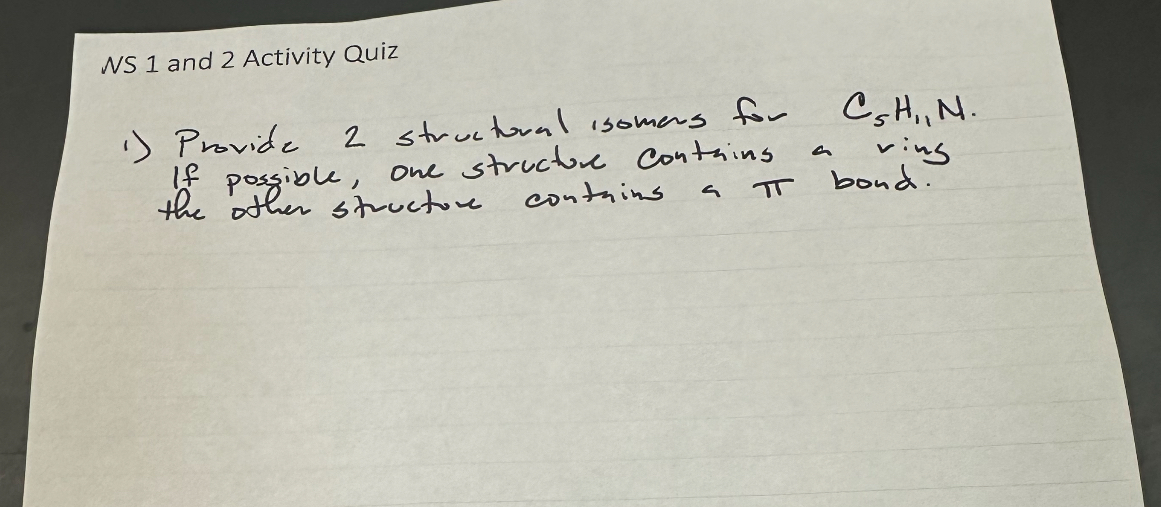 WS 1 and 2 Activity Quiz
1) Provide 2 structural isomers for C₅H₁₁N.
If possible, one structure contains a ring
the other structure contains a π bond.